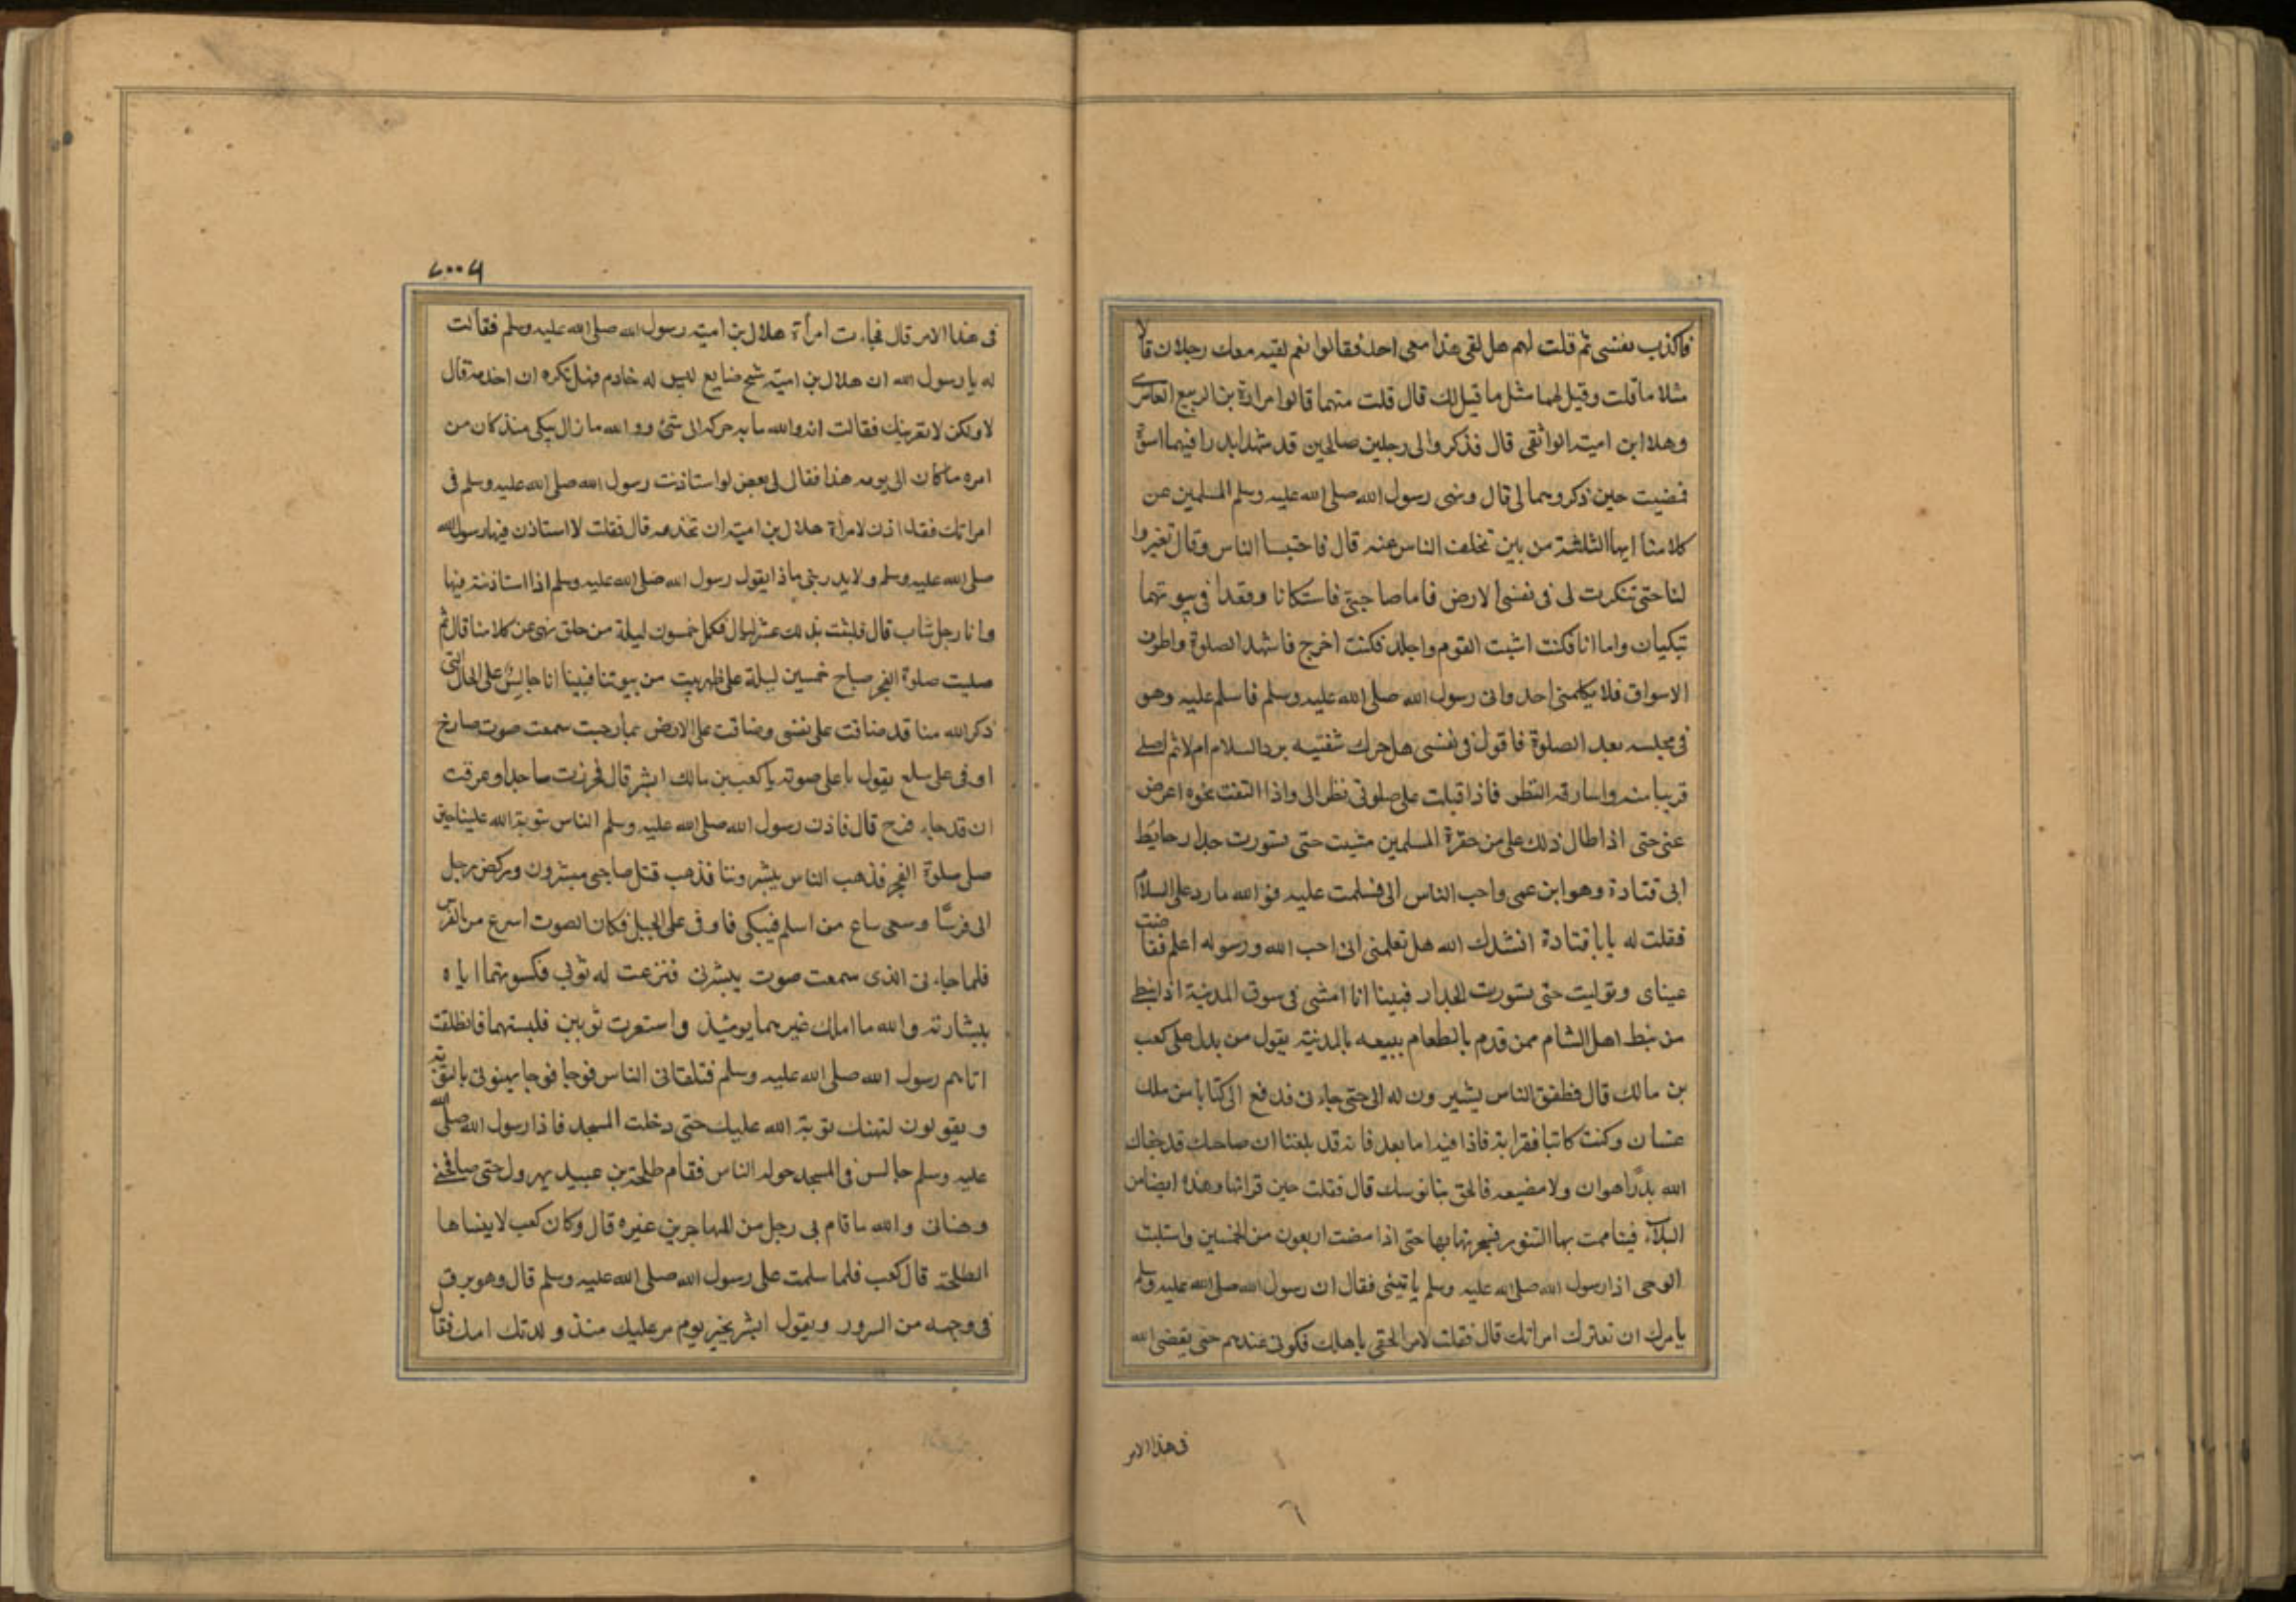 فاكذب نفسى ثم قلت لهم هل لقى هذا معى احد فقالوا نعم لقيه معك رجلان قالا
مثلا ما قلت وقيل لهما مثل ما قيل لك قال قلت منهما قالوا مرارة بن الربيع العامرى
وهلا ابن امية الواثقى قال فذكروا لى رجلين صالحين قد شهدا بدرا فيهما اسوة
فمضيت حين ذكروهما لى قال ونهى رسول الله صلى الله عليه وسلم المسلمين عن
كلامنا ايها الثلثة من بين تخلف الناس عنه قال فاجتبنا الناس وقال تغيروا
لنا حتى تنكرت لى فى نفسى الارض فاما صاحبى فاستكانا وقعدا فى بيوتهما
تبكيان واما انا فكنت اشبت القوم واجلد فكنت اخرج فاشهد الصلوة واطوف
الاسواق فلا يكلمنى احد وانى رسول الله صلى الله عليه وسلم فاسلم عليه وهو
فى مجلسه بعد الصلوة فاقول فى نفسى هل حرك شفتيه برد السلام ام لا ثم اصلى
قريبا منه واسارقه النظر فاذا قبلت على صلوتى نظر الى واذا التفت نحوه اعرض
عنى حتى اذا طال ذلك على من جفوة المسلمين مشيت حتى تسورت جدار حايط
ابى قتادة وهو ابن عمى واحب الناس الى فسلمت عليه فو الله ما رد على السلام
فقلت له يا با قتادة انشدك الله هل تعلمنى انى احب الله ورسوله اعلم ففاضت
عيناى وتوليت حتى تسورت الجدار فبينا انا امشى فى سوق المدينة اذا نبطى
من نبط اهل الشام ممن قدم بالطعام ببيعه بالمدينة يقول من يدل على كعب
بن مالك قال فطفق الناس يشيرون له الى حتى جاءنى فدفع الى كتابا من ملك
غسان وكنت كاتبا فقرابة فاذا فيه اما بعد فانه قد بلغنا ان صاحبك قد جفاك
الله بدار هوان ولا مضيعه فالحق بنا نوسك قال فقلت حين قراتها وهذه ايضا من
البلاء فيتاممت بها التنور فسجرتها بها حتى اذا مضت اربعون من الخمسين واستلبث
الوحى اذا رسول الله صلى الله عليه وسلم ياتينى فقال ان رسول الله صلى الله عليه وسلم
يامرك ان تعتزل امراتك قال فقلت لامر الحقى باهلك فكونى عندهم حتى يقضى الله
فى هذا الامر
٦
٢٠٠٦
فى هذا الامر قال فجاءت امرأة هلال بن امية رسول الله صلى الله عليه وسلم فقالت
له يا رسول الله ان هلال بن امية شيخ ضايع ليس له خادم فهل تكره ان اخدمه قال
لا ولكن لا تقربنك فقالت انه والله ما به حركة الى شئ ووالله ما زال يبكى منذ كان من
امره ما كان الى يومه هذا فقال لى بعض لو استاذنت رسول الله صلى الله عليه وسلم فى
امراتك فقد اذن لامرأة هلال بن امية ان تخدمه قال فقلت لا استاذن فيها رسول الله
صلى الله عليه وسلم ولا يدرينى ماذا يقول رسول الله صلى الله عليه وسلم اذا استاذنته فيها
وانا رجل شاب قال فلبثت بذلك عشر ليال فكمل خمسون ليلة من حلق نهى عن كلامنا قال ثم
صليت صلوة الفجر صباح خمسين ليلة على ظهر بيت من بيوتنا فبينا انا جالس على الحال التى
ذكر الله منا قد ضاقت على نفسى وضاقت على الارض بما رحبت سمعت صوت صارخ
اوفى على سلع يقول باعلى صوته يا كعب بن مالك ابشر قال فخررت ساجدا وعرفت
ان قد جاء فرح قال فاذن رسول الله صلى الله عليه وسلم الناس بتوبة الله علينا حين
صلى صلوة الفجر فذهب الناس يبشروننا فذهب قبل صاحبى مبشرون وركض رجل
الى فرسًا وسعى ساع من اسلم فيبكى فاوفى على الجبل فكان الصوت اسرع من الفرس
فلما جاءنى الذى سمعت صوت يبشرنى فنزعت له ثوبى فكسوتهما اياه
ببشارته والله ما املك غيرهما يومئذ واستعرت ثوبين فلبستهما فانطلقت
اتامم رسول الله صلى الله عليه وسلم فتلقانى الناس فوجا فوجا يهنونى بالتوبة
ويقولون لتهنك توبة الله عليك حتى دخلت المسجد فاذا رسول الله صلى الله
عليه وسلم جالس فى المسجد حوله الناس فقام طلحة بن عبيد يهرول حتى صافحنى
وهنانى والله ما قام بى رجل من المهاجرين غيره قال وكان كعب لا ينساها
الطلحة قال كعب فلما سلمت على رسول الله صلى الله عليه وسلم قال وهو يبرق
فى وجهه من السرور ويقول ابشر بخير يوم مر عليك منذ ولدتك امك فقال